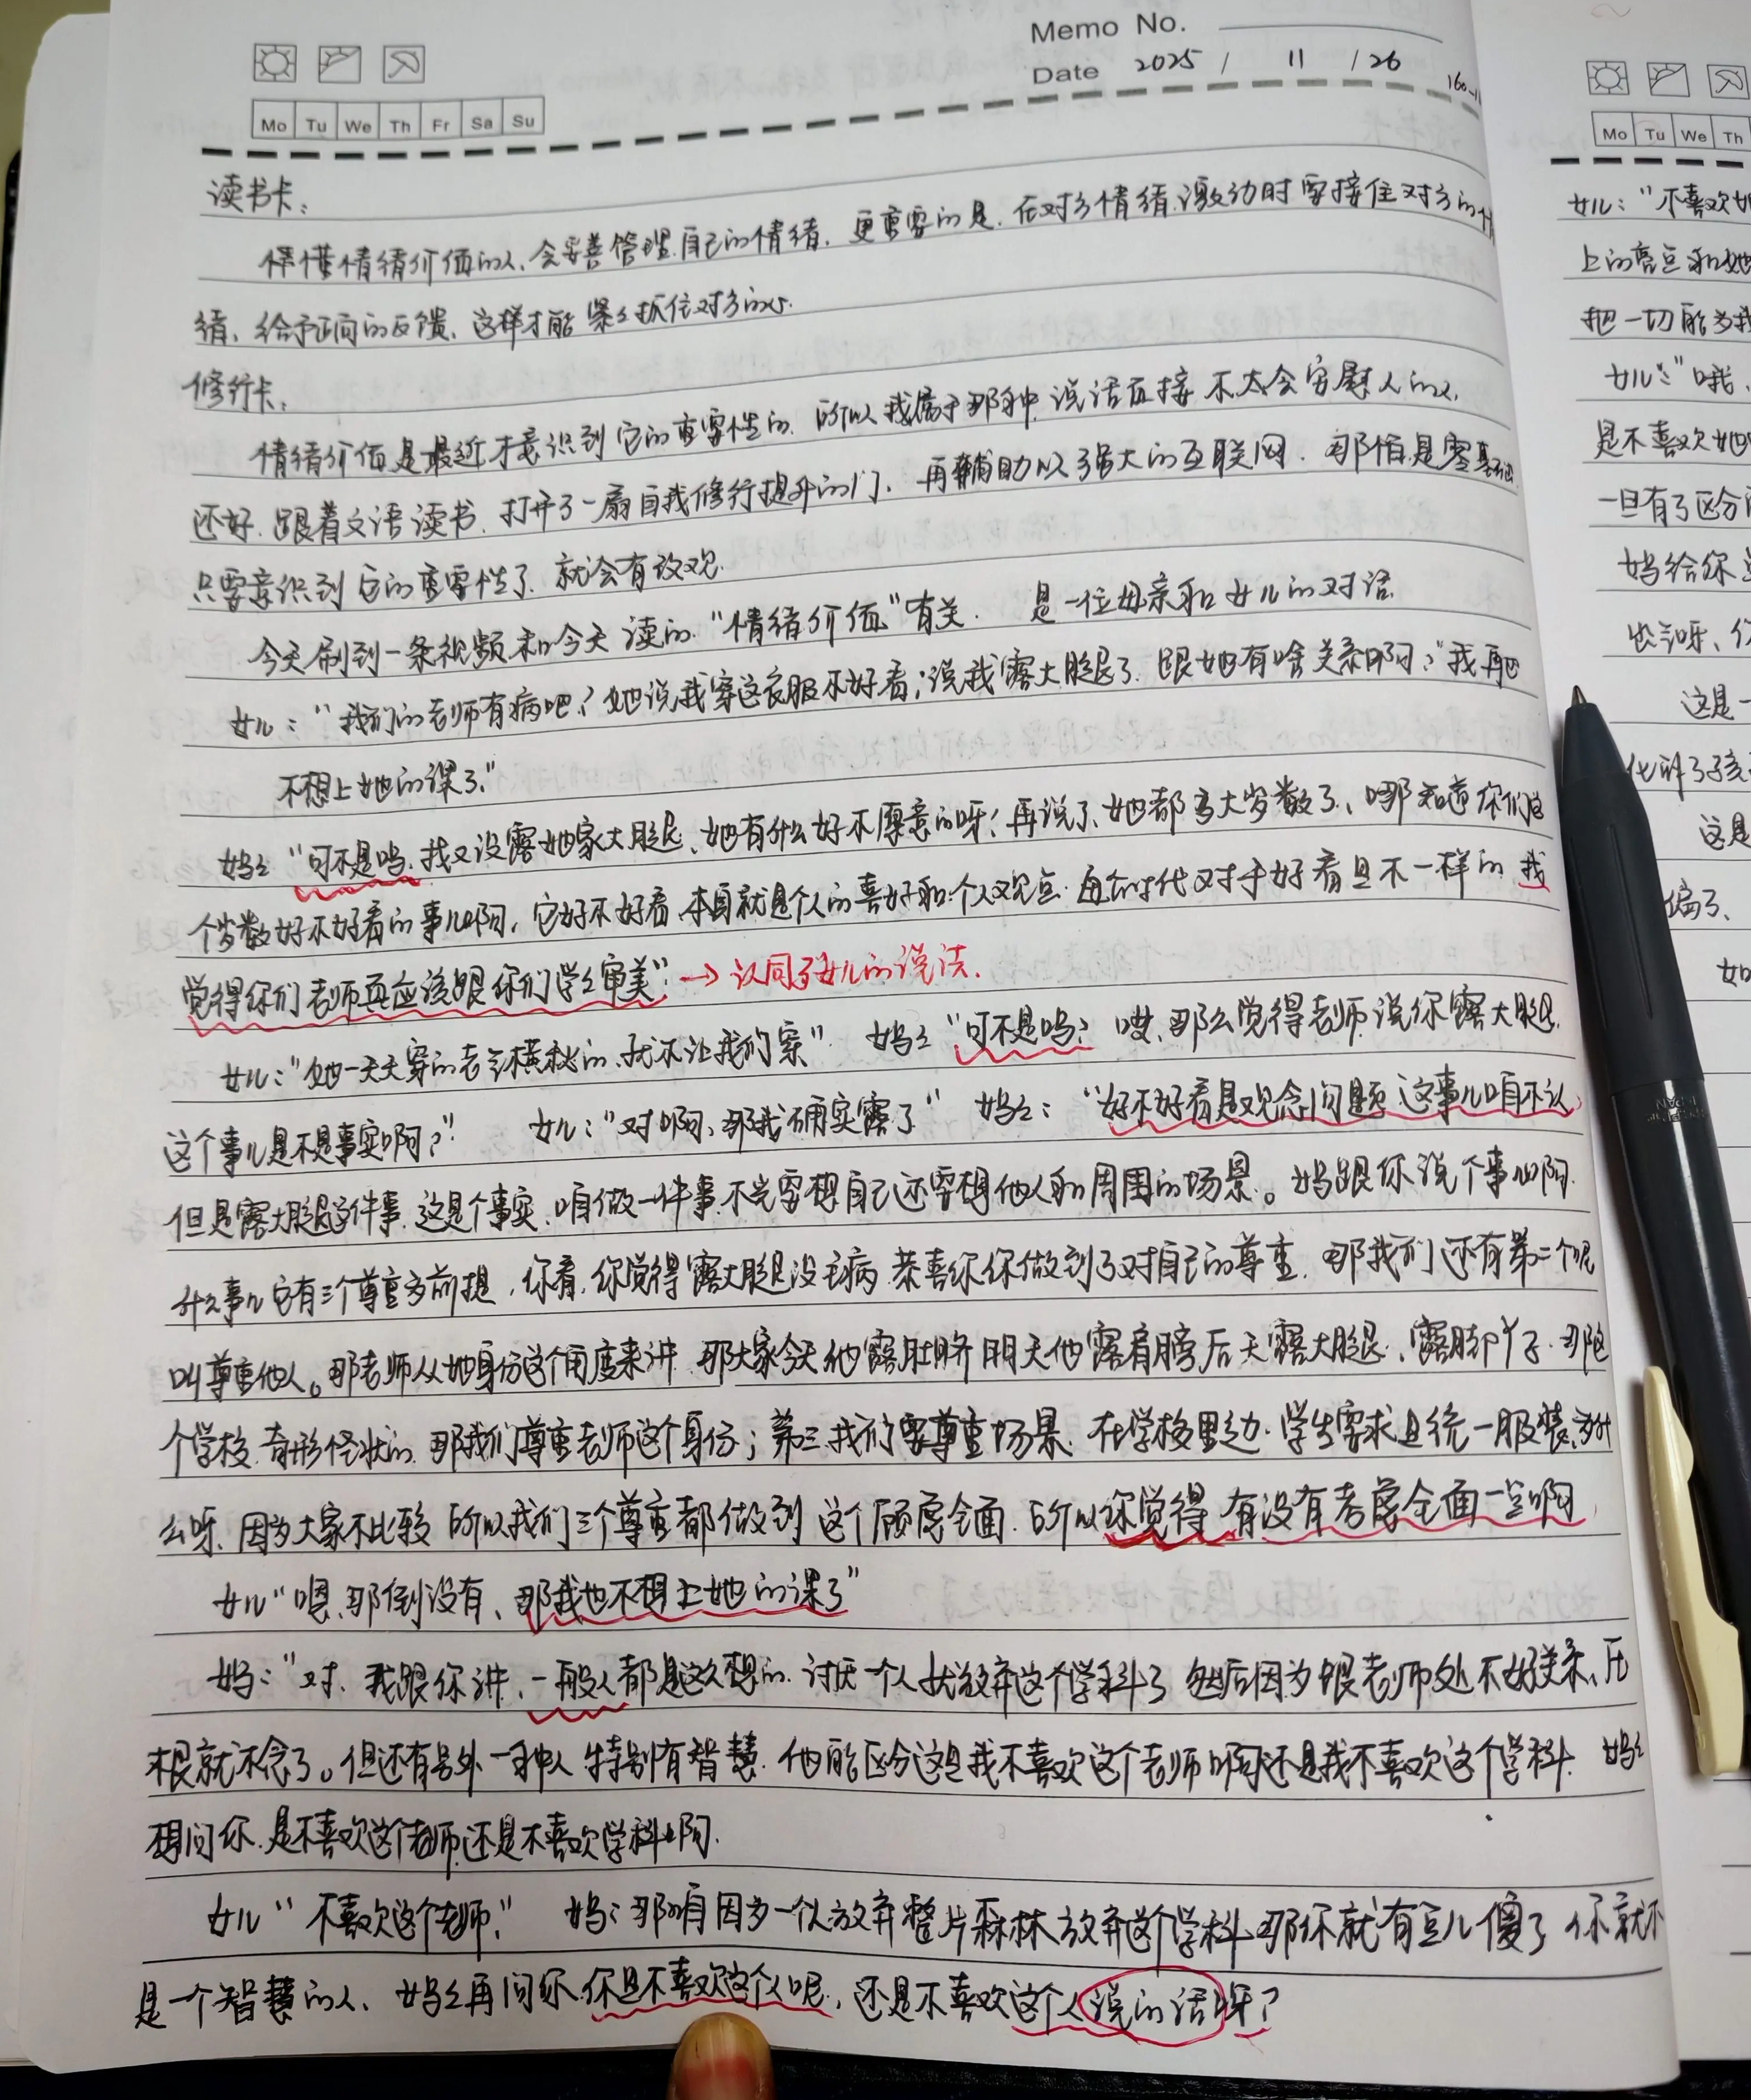 Memo No.
Date 2025 / 11 / 26
Mo Tu We Th Fr Sa Su
读书卡:
懂情绪价值的人、会妥善管理自己的情绪. 更重要的是. 在对方情绪激动时要接住对方的情
绪、给予正向的反馈、这样才能紧紧抓住对方的心.
修行卡:
情绪价值是最近才意识到它的重要性的. 所以我属于那种说话直接不太会安慰人的人,
还好. 跟着文语读书. 打开了一扇自我修行提升的门. 再辅助以强大的互联网. 那怕是零基础
只要意识到它的重要性了. 就会有改观.
今天刷到一条视频和今天读的“情绪价值”有关. 是一位母亲和女儿的对话.
女儿:“我们的老师有病吧?她说我穿这衣服不好看;说我露大腿了. 跟她有啥关系啊?”我再也
不想上她的课了.”
妈: “可不是吗. 我又没露她家大腿、她有什么好不愿意的呀! 再说了、她都多大岁数了、哪知道你们这
个岁数好不好看的事儿啊, 它好不好看. 本身就是个人的喜好和个人观点. 每个时代对于好看且不一样的 我
觉得你们老师真应该跟你们学学审美”→认同了女儿的说法.
女儿:“她一天天穿的老气横秋的、就不让我们穿” 妈: “可不是吗? 哎、那么觉得老师说你露大腿
这个事儿是不是事实啊?” 女儿:“对啊、那我确实露了” 妈妈: “好不好看是观念问题 这事儿咱不认
但是露大腿这件事. 这是个事实. 咱做一件事不光要想自己还要想他人和周围的场景。妈跟你说个事儿啊.
什么事儿它有三个尊重为前提, 你看, 你觉得露大腿没毛病 恭喜你你做到了对自己的尊重. 那我们还有第二个呢
叫尊重他人。那老师从她身份这个角度来讲. 那大家今天他露肚脐 明天他露肩膀后天露大腿、露脚丫子. 那这
个学校. 奇形怪状的. 那我们尊重老师这个身份; 第三. 我们要尊重场景. 在学校里边. 学生需求且统一服装、为什
么呀. 因为大家不比较 所以我们三个尊重都做到 这个顾虑全面. 所以你觉得 有没有考虑全面一点啊
女儿“嗯、那倒没有、那我也不想上她的课了”
妈:“对、我跟你讲、一般人都是这么想的. 讨厌一个人就放弃这个学科了 然后因为跟老师处不好关系、压
根就不念了。但还有另外一种人特别有智慧. 他能区分这是我不喜欢这个老师啊还是我不喜欢这个学科. 妈妈
想问你. 是不喜欢这个老师还是不喜欢学科啊.
女儿“不喜欢这个老师.” 妈: 那咱因为一个人放弃整片森林 放弃这个学科. 那你就有点儿傻了 你就不
是一个智慧的人、妈妈再问你. 你是不喜欢这个人呢, 还是不喜欢这个人说的话呀?
Mo Tu We Th
女儿:“不喜欢
上的亮点和她
把一切能为我
女儿:“哦、
是不喜欢她
一旦有了区分
妈给你
也行呀、你
这是一
化解了孩
这是
偏了、
如